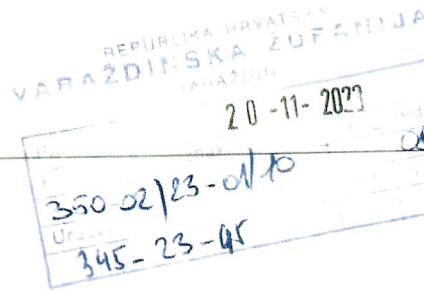 REPUBLIKA HRVATSKA
VARAŽDINSKA ŽUPANIJA
VARAŽDIN
20-11-2023
350-02/23-01/10
345-23-45